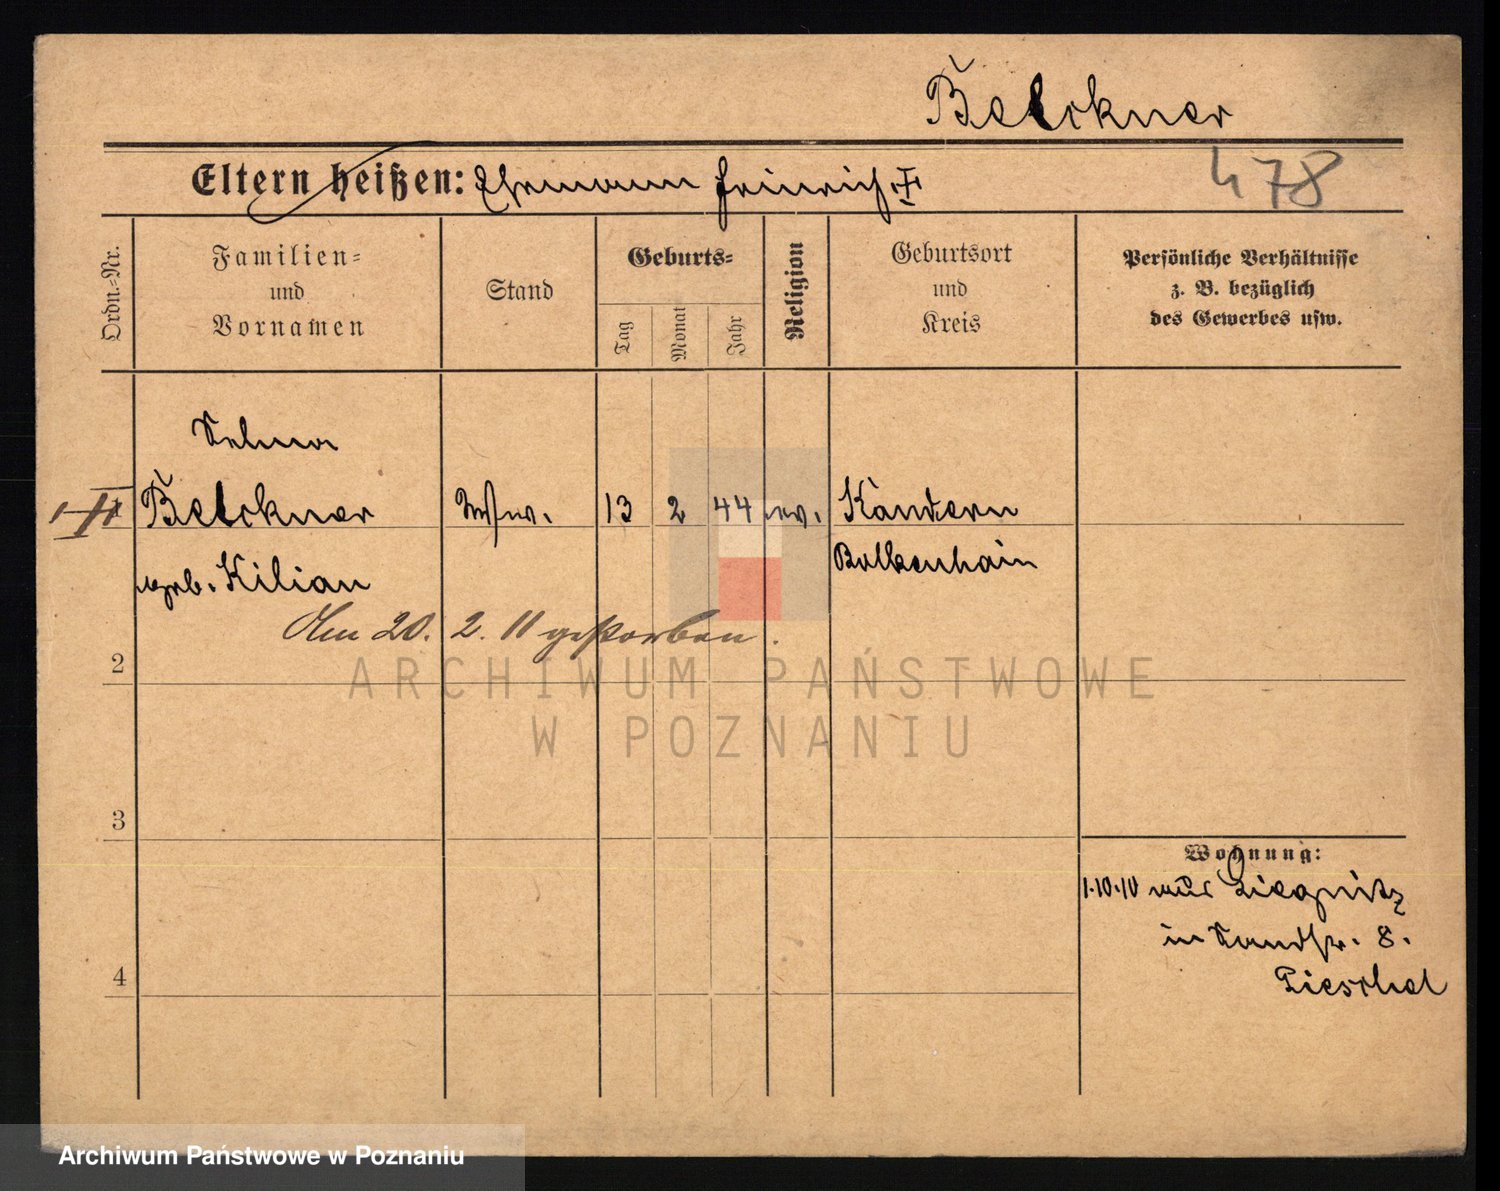 Belckner
Eltern heißen: Ehemann Heinrich †
478
Ordn.-Nr.
Familien-
und
Vornamen
Stand
Geburts-
Tag
Monat
Jahr
Religion
Geburtsort
und
Kreis
Persönliche Verhältnisse
z. B. bezüglich
des Gewerbes usw.
Selma
Belckner Ww. 13 2 44 ev. Kandern
geb. Kilian Bolkenhain
Am 20. 2. 11 gestorben.
2
3
4
Wohnung:
1.10.10 aus Liegnitz
in 8.
ARCHIWUM PAŃSTWOWE
W POZNANIU
Archiwum Państwowe w Poznaniu